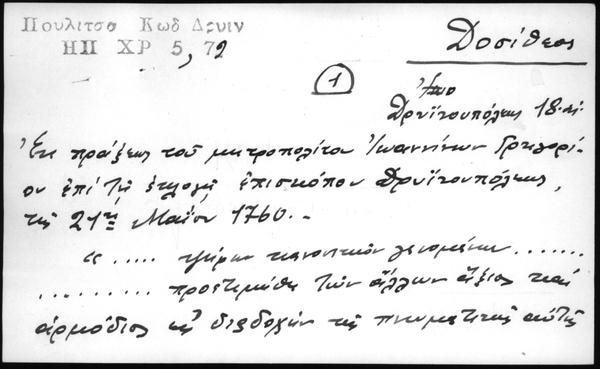 Πουλιτσα Κωδ Δρυιν
ΗΠ ΧΡ 5, 72
Δοσίθεος
1
Ἀπο
Δρυϊνουπόλεως 18.αι.
Ἐκ πράξεως τοῦ μητροπολίτου Ἰωαννίνων Γρηγορί-
ου ἐπί τῇ ἐκλογῇ ἐπισκόπου Δρυϊνουπόλεως,
τῆς 21ης Μαΐου 1760.-
« ..... ψήφων κανονικῶν γενομένων .......
......... προετιμήθη τῶν ἄλλων ἄξιος καί
ἁρμόδιος εἰς διαδοχήν τῆς πνευματικῆς αὐτῆς